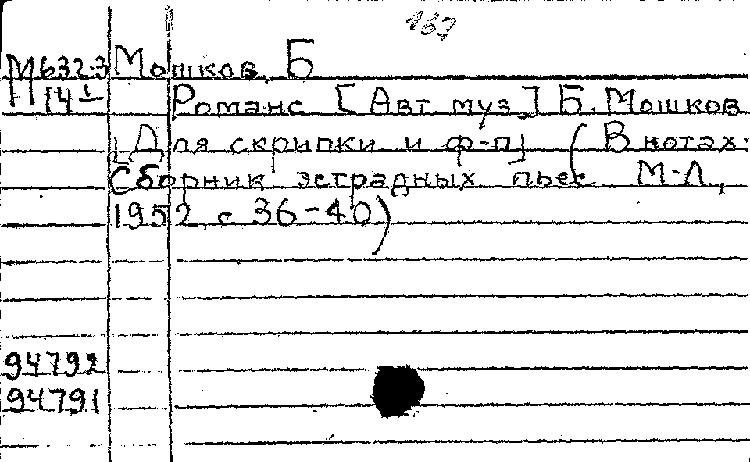 137
М632-3 Мошков, Б
Романс [Авт муз.] Б. Мошков
[Для скрипки и ф-п] (В нотах:
Сборник эстрадных пьес М-Л,
1952 с 36-40)
94792
94791